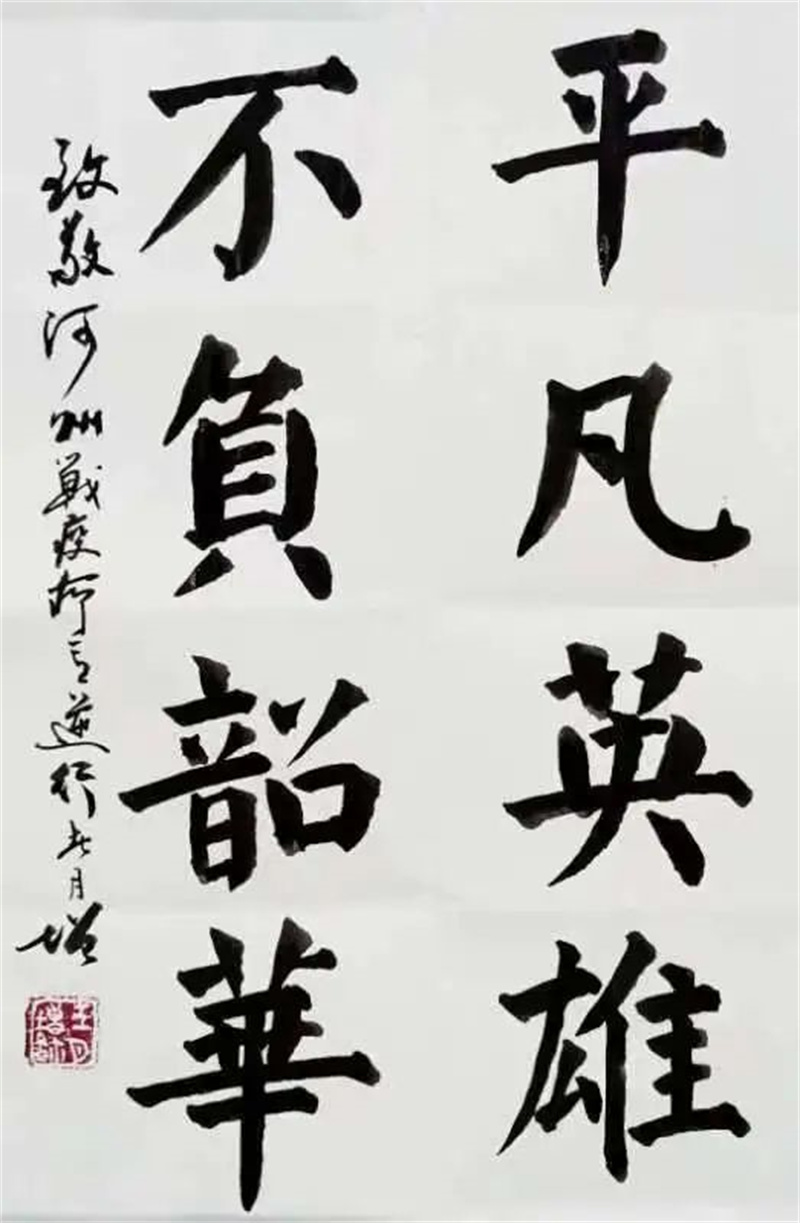 平凡英雄
不負韶華
致敬河州戰疫所有逆行者月增